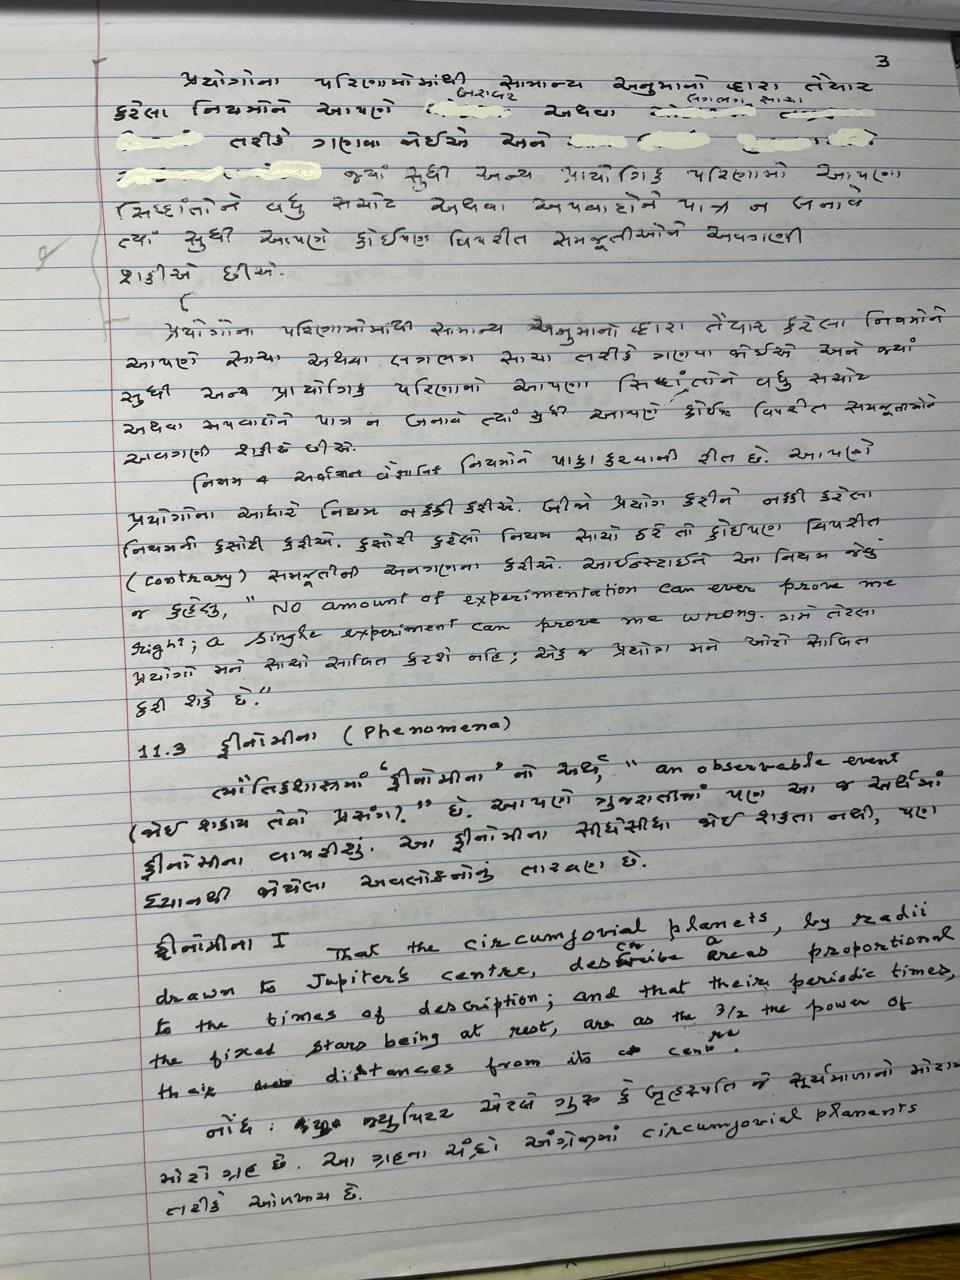 3
પ્રયોગોના પરિણામોમાંથી સામાન્ય અનુમાનો દ્વારા તૈયાર
બરાબર લગભગ સાચા
કરેલા નિયમોને આપણે અથવા
તરીકે ગણવા જોઈએ અને
જ્યાં સુધી અન્ય પ્રાયોગિક પરિણામો આપણા
સિધ્ધાંતોને વધુ સચોટ અથવા અપવાદોને પાત્ર ન બનાવે
ત્યાં સુધી આપણે કોઈપણ વિપરીત સમજૂતીઓને અવગણી
શકીએ છીએ.
પ્રયોગોના પરિણામોમાંથી સામાન્ય અનુમાનો દ્વારા તૈયાર કરેલા નિયમોને
આપણે સાચા અથવા લગભગ સાચા તરીકે ગણવા જોઈએ અને જ્યાં
સુધી અન્ય પ્રાયોગિક પરિણામો આપણા સિધ્ધાંતોને વધુ સચોટ
અથવા અપવાદોને પાત્ર ન બનાવે ત્યાં સુધી આપણે કોઈપણ વિપરીત સમજૂતીઓને
અવગણી શકીએ છીએ.
નિયમ 4 વૈજ્ઞાનિક નિયમોને પાકા કરવાની રીત છે. આપણે
પ્રયોગોના આધારે નિયમ નક્કી કરીએ. બીજો પ્રયોગ કરીને નક્કી કરેલા
નિયમની કસોટી કરીએ. કસોટી કરેલો નિયમ સાચો ઠરે તો કોઈપણ વિપરીત
(contrary) સમજૂતીની અવગણના કરીએ. આઈન્સ્ટાઈને આ નિયમ જેવું
જ કહેલું, "No amount of experimentation can ever prove me
right; a single experiment can prove me wrong. ગમે તેટલા
પ્રયોગો મને સાચો સાબિત કરશે નહિ; એક જ પ્રયોગ મને ખોટો સાબિત
કરી શકે છે."
11.3 ફીનોમીના (Phenomena)
ભૌતિકશાસ્ત્રમાં 'ફીનોમીના' નો અર્થ, "an observable event
(જોઈ શકાય તેવો પ્રસંગ)." છે. આપણે ગુજરાતીમાં પણ આ જ અર્થમાં
ફીનોમીના વાપરીશું. આ ફીનોમીના સીધેસીધા જોઈ શકતા નથી, પણ
ધ્યાનથી જોયેલા અવલોકનોનું તારવણ છે.
ફીનોમીના I That the circumjovial planets, by radii
drawn to Jupiter's centre, describe areas proportional
to the times of description; and that their periodic times,
the fixed stars being at rest, are as the 3/2 the power of
their distances from its centre.
નોંધ: જ્યુપિટર એટલે ગુરુ કે બૃહસ્પતિ જે સૂર્યમાળાનો મોટામાં
મોટો ગ્રહ છે. આ ગ્રહના ચંદ્રો અંગ્રેજીમાં circumjovial planents
તરીકે ઓળખાય છે.